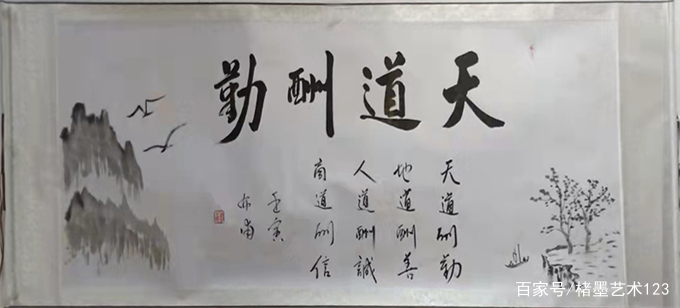 天道酬勤
天道酬勤
地道酬善
人道酬誠
商道酬信
壬寅
百家号/褚墨艺术123